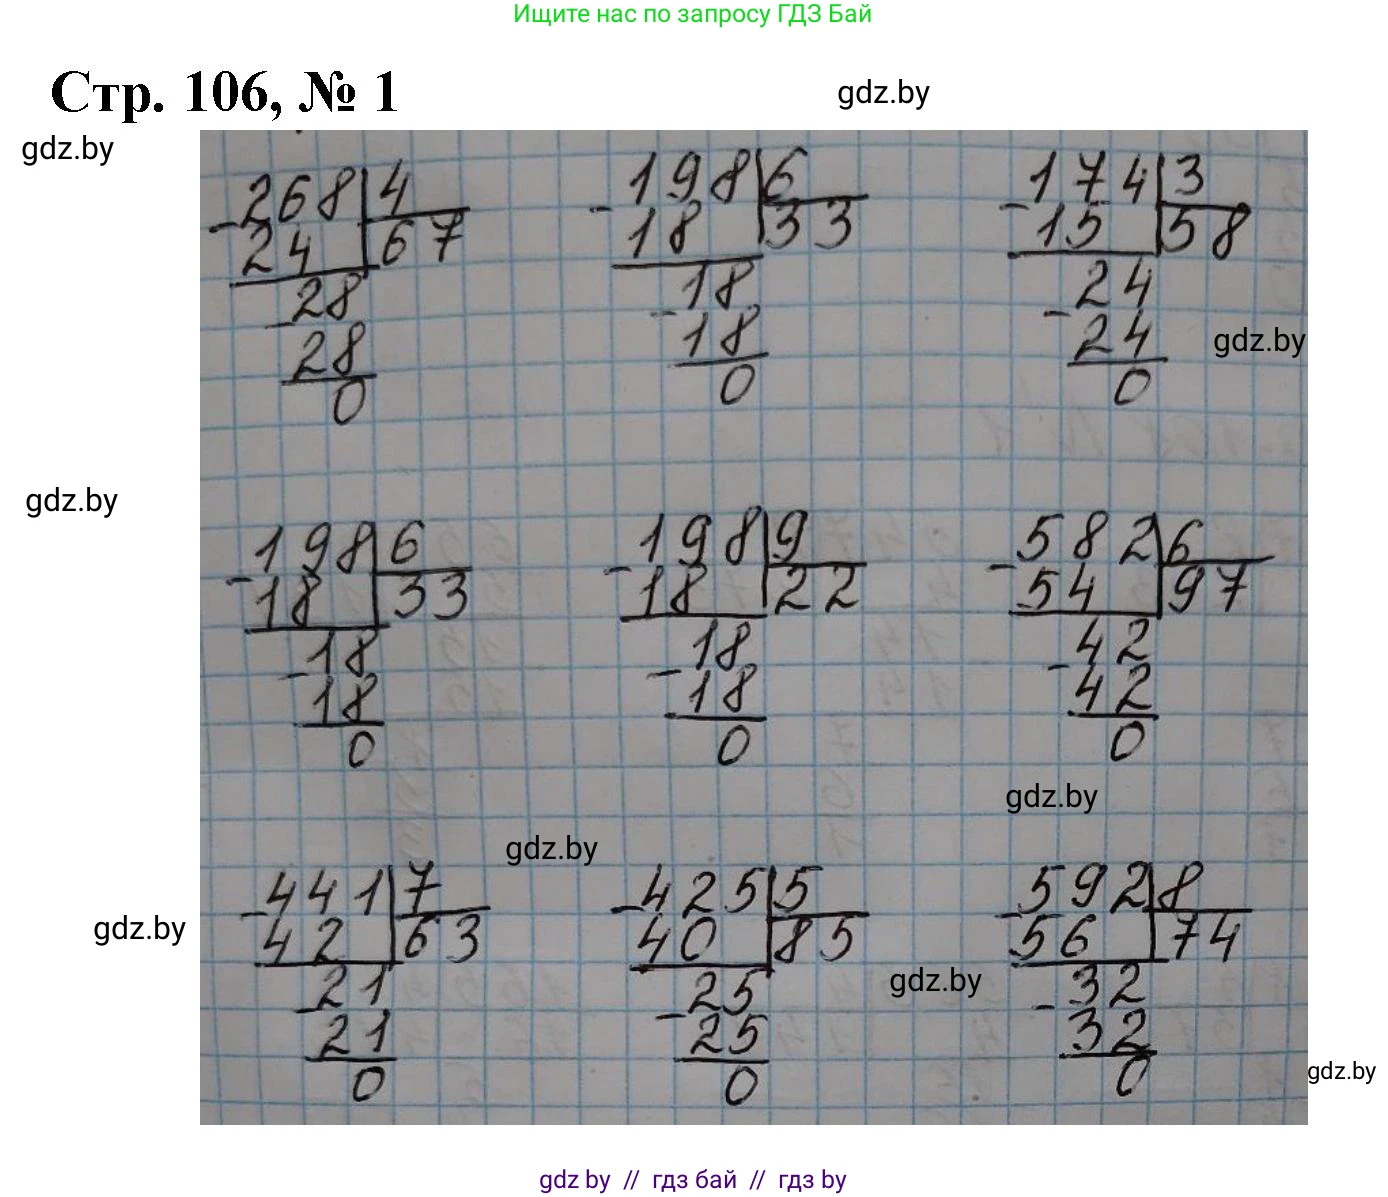 Ищите нас по запросу ГДЗ Бай
Стр. 106, № 1
gdz.by
gdz.by
268 4
- 24 67
28
- 28
0
198 6
- 18 33
18
- 18
0
174 3
- 15 58
24
- 24
0
gdz.by
gdz.by
198 6
- 18 33
18
- 18
0
198 9
- 18 22
18
- 18
0
582 6
- 54 97
42
- 42
0
gdz.by
gdz.by
441 7
- 42 63
21
- 21
0
425 5
- 40 85
25
- 25
0
592 8
- 56 74
32
- 32
0
gdz.by
gdz.by
gdz.by
gdz by // гдз бай // гдз by